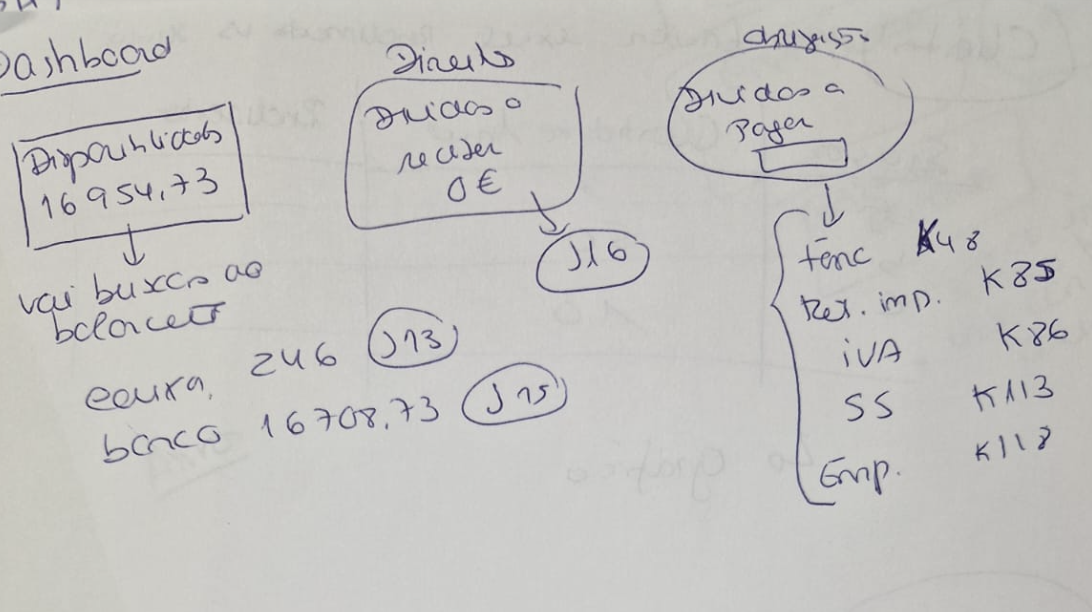 Dashboard
Disponibilidades
16 954,73
vai buscar ao
balancete
caixa. 246 J13
banco 16 708,73 J15
Direito
Dividas a
receber
0 €
J16
obrigação
Dividas a
Pagar
Forne K48
Ret. imp. K85
iVA K86
SS K113
Emp. K118